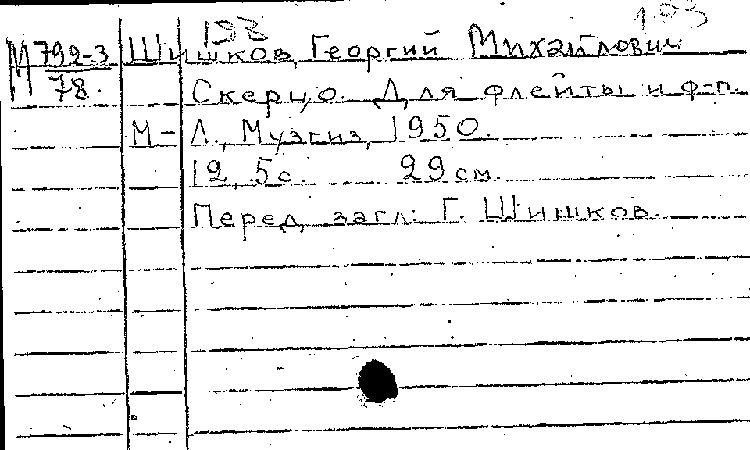 193
М 792-3/78. Шишков, Георгий Михайлович
Скерцо. Для флейты и ф-п.
М-Л., Музгиз, 1950.
12, 5с. 29 см.
Перед загл: Г. Шишков.